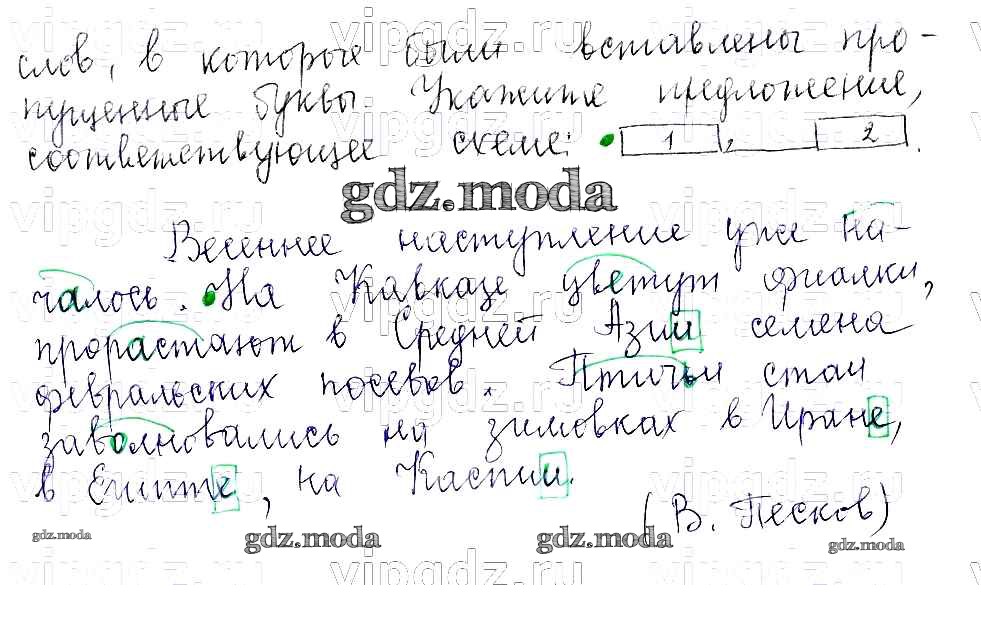 слов, в которые были вставлены про-
пущенные буквы. Укажите предложение,
соответствующее схеме: 1 , 2 .
gdz.moda
Весеннее наступление уже на-
чалось. На Кавказе цветут фиалки,
прорастают в Средней Азии семена
февральских посевов. Птичьи стаи
заволновались на зимовках в Иране,
в Египте, на Каспии.
(В. Песков)
gdz.moda gdz.moda gdz.moda gdz.moda
vipgdz.ru vipgdz.ru vipgdz.ru